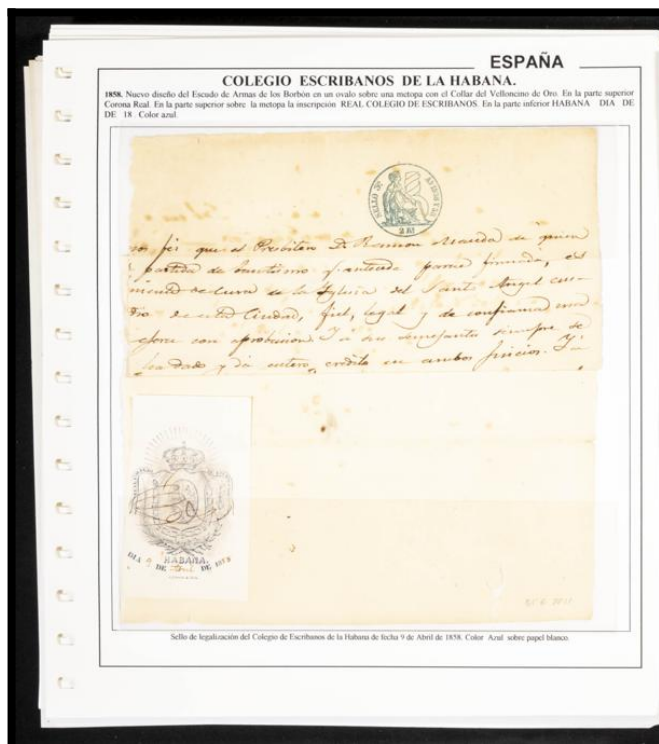 ESPAÑA
COLEGIO ESCRIBANOS DE LA HABANA.
1858. Nuevo diseño del Escudo de Armas de los Borbón en un ovalo sobre una metopa con el Collar del Velloncino de Oro. En la parte superior
Corona Real. En la parte superior sobre la metopa la inscripción REAL COLEGIO DE ESCRIBANOS. En la parte inferior HABANA DIA DE
DE 18 Color azul.
2 Rl
fé: que el Presbitero D. Ramon de quien
partida de bautismo antecede parece firmada, es
de Cura de la Yglesia del Santo Angel cus-
de esta Ciudad, fiel, legal y de confianza
con aprobacion. Y á sus semejantes siempre se
ha dado y dá entero credito en ambos juicios. Y
HABANA.
DIA 9 DE DE 185
Sello de legalización del Colegio de Escribanos de la Habana de fecha 9 de Abril de 1858. Color Azul sobre papel blanco.